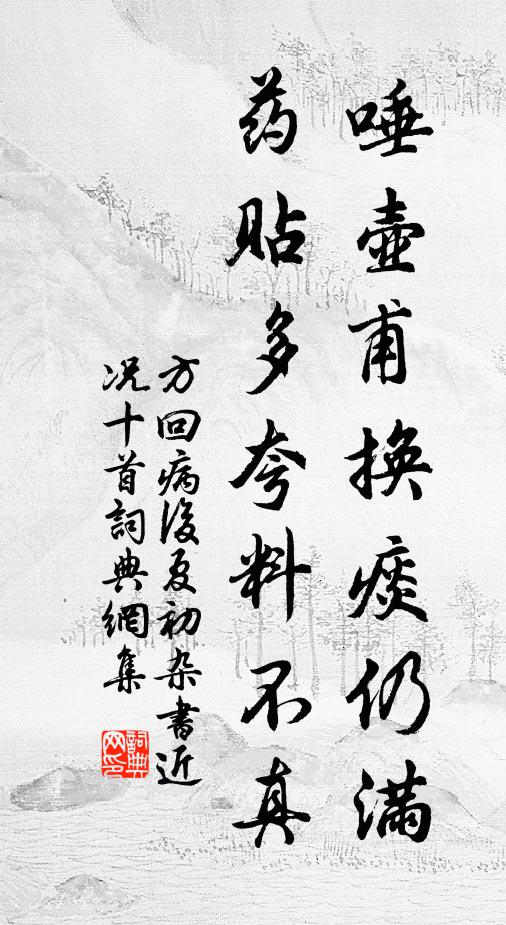 唾壶甫换痰仍满
药贴多夸料不真
方回病後夏初杂书近
况十首詞典網集
詞典網印